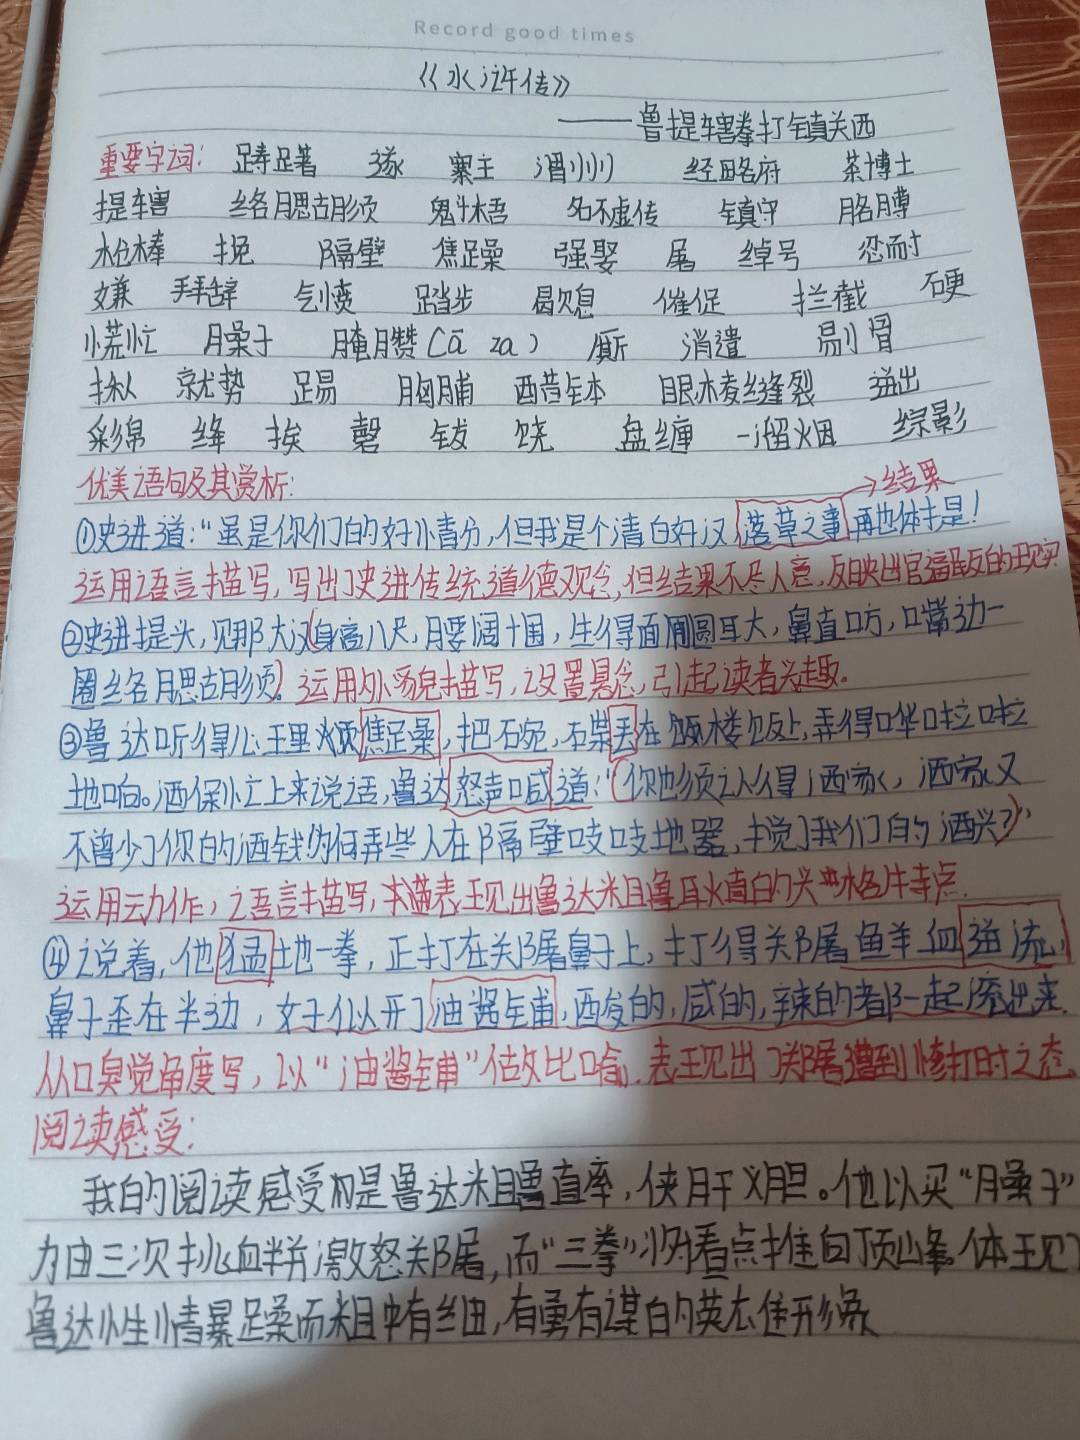 Record good times
《水浒传》
——鲁提辖拳打镇关西
重要字词: 踌躇 豥 寨主 酒州 经略府 茶博士
提辖 络腮胡须 魁梧 名不虚传 镇守 胳膊
枪棒 挽 隔壁 焦躁 强娶 屠 绰号 忍耐
嫌 拜辞 气愤 踏步 歇息 催促 拦截 硬
慌忙 臊子 腌臜(ā za) 厮 消遣 剔骨
揪 就势 踢 胸脯 醋钵 眼棱缝裂 迸出
彩帛 绛 挨 磬 钹 饶 盘缠 一溜烟 踪影
优美语句及其赏析:
→结果
①史进道:“虽是你们的好情分,但我是个清白好汉,落草之事再也休提!
运用语言描写,写出了史进传统道德观念,但结果不尽人意,反映出官逼民反的现实
②史进提头,见那大汉(身高八尺,腰阔十围,生得面圆耳大,鼻直口方,口嘴边一
圈络腮胡须)。运用外貌描写,设置悬念,引起读者兴趣。
③鲁达听得心里烦焦躁,把碗,碟丢在楼板上,弄得哗啦啦
地响。酒保忙上来说话,鲁达怒声喊道:“(你也须认得洒家,洒家又
不曾少了你的酒钱,为何弄些人在隔壁吱吱地嚣,搅了我们的酒兴?)”
运用动作,语言描写,表现出鲁达粗鲁耿直的性格特点.
④说着,他猛地一拳,正打在关屠鼻子上,打得关屠鲜血迸流,
鼻子歪在半边,好似开了油酱铺,酸的,咸的,辣的都一起滚出来.
从嗅觉角度写,以“油酱铺”做比喻,表现出了郑屠遭到惨打时之态.
阅读感受:
我的阅读感受的是鲁达粗鲁直率,侠肝义胆。他以买“臊子”
为由三次挑衅激怒关屠,而“三拳”将看点推向顶峰。体现了
鲁达性情暴躁而粗中有细,有勇有谋的英雄形象